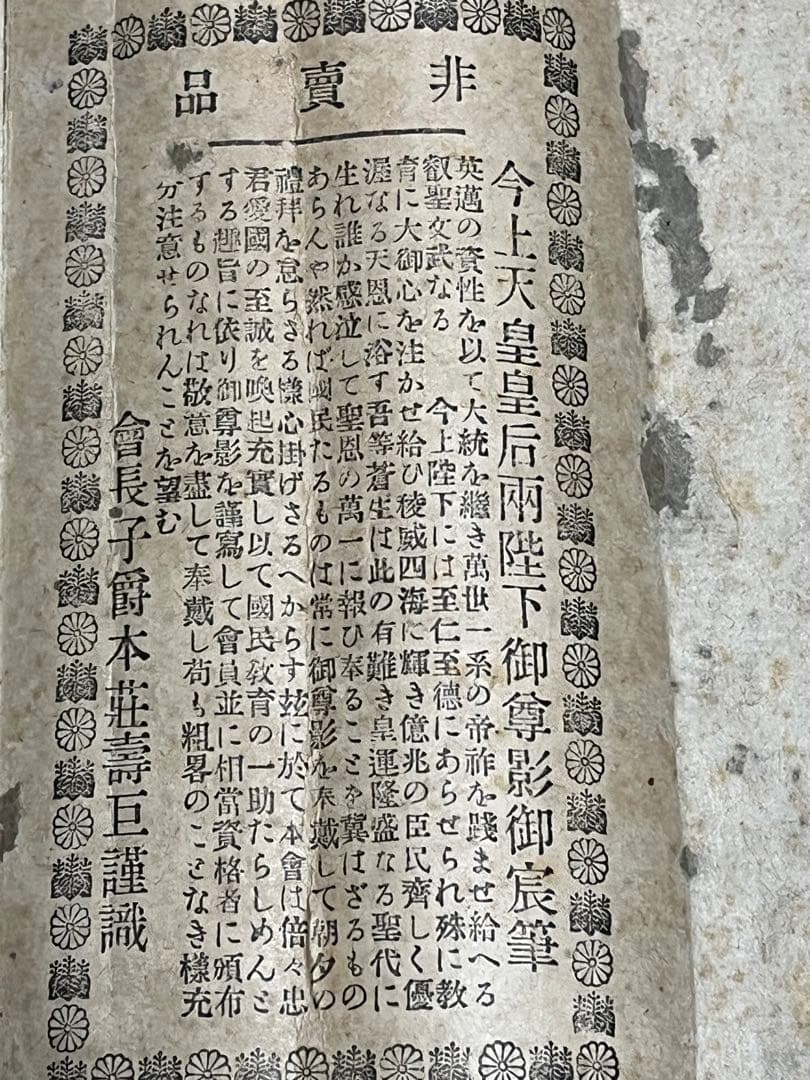 非賣品
今上天皇皇后兩陛下御尊影御宸筆
英邁の資性を以て大統を繼き萬世一系の帝祚を踐ませ給へる
叡聖文武なる　今上陛下には至仁至德にあらせられ殊に教
育に大御心を注かせ給ひ稜威四海に輝き億兆の臣民齊しく優
渥なる天恩に浴す吾等蒼生は此の有難き皇運隆盛なる聖代に
生れ誰か感泣して聖恩の萬一に報ひ奉ることを冀はざるもの
あらんや然れば國民たるものは常に御尊影を奉戴して朝夕の
禮拜を怠らさる樣心掛げさるへからす玆に於て本會は倍々忠
君愛國の至誠を喚起充實し以て國民敎育の一助たらしめんと
する趣旨に依り御尊影を謹寫して會員並に相當資格者に頒布
するものなれは敬意を盡して奉戴し苟も粗畧のことなき樣充
分注意せられんことを望む
會長子爵本莊壽巨謹識